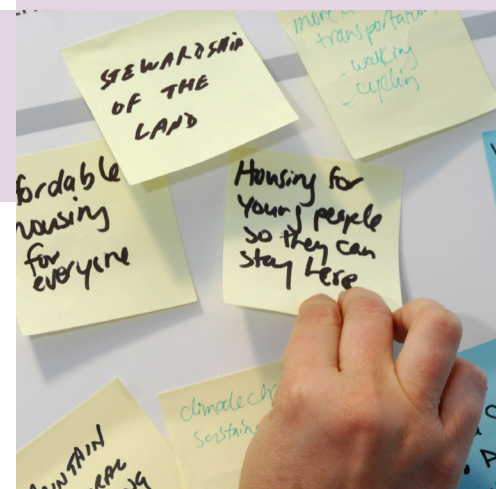 STEWARDSHIP
OF THE
LAND
more
transportation
- walking
- cycling
fordable
housing
for
everyone
Housing for
young people
so they can
stay here
climate ch
sustain